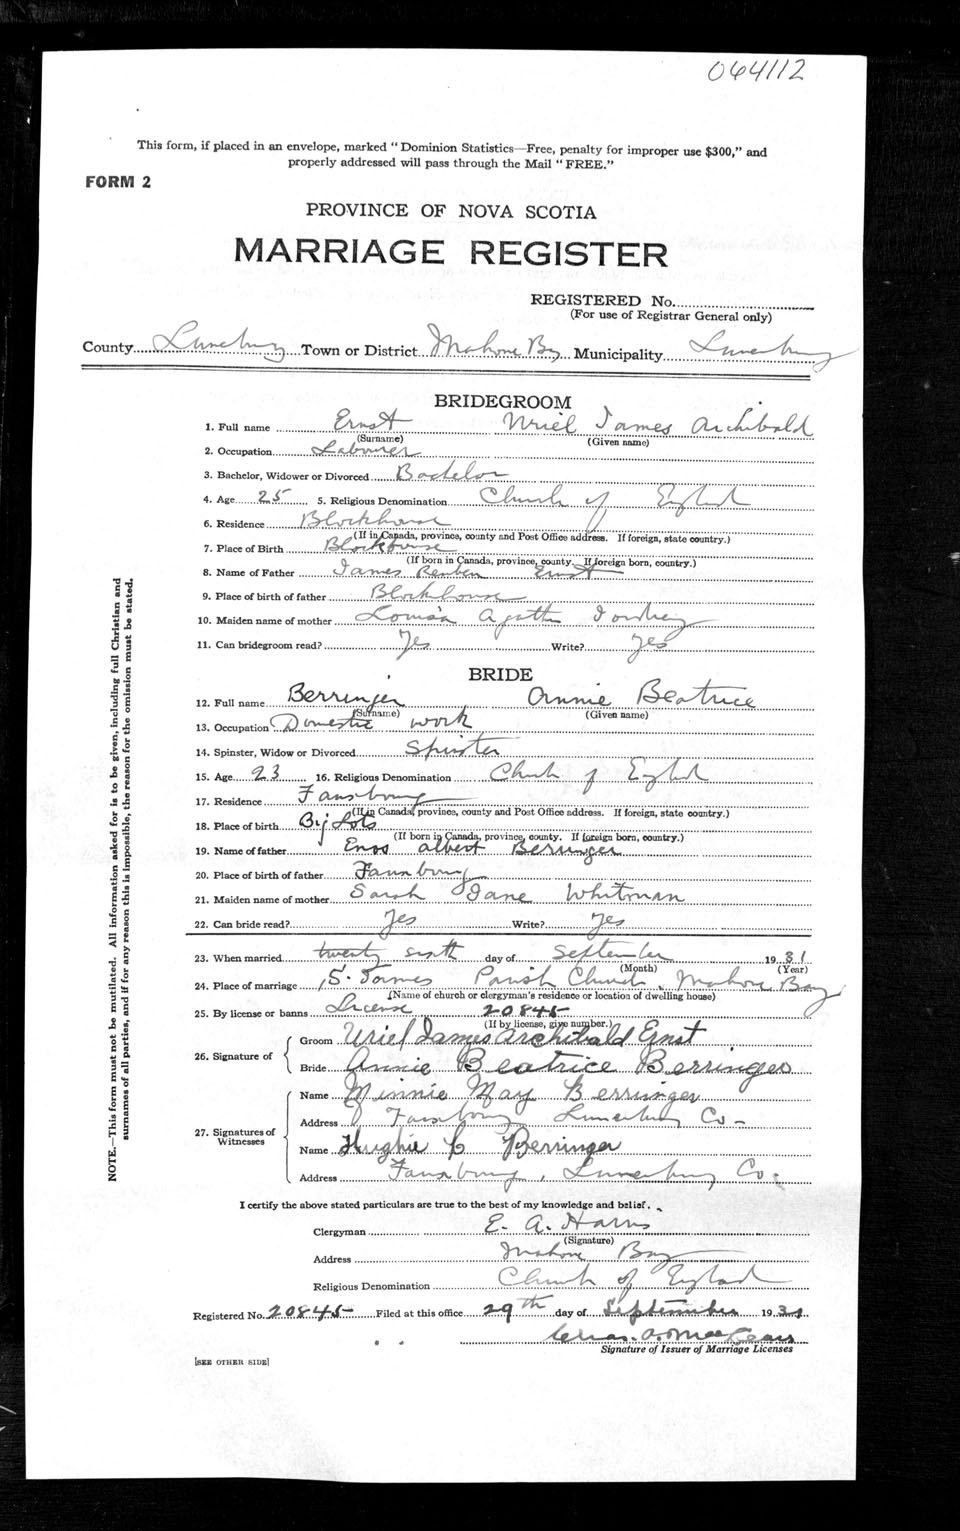 064112
This form, if placed in an envelope, marked "Dominion Statistics—Free, penalty for improper use $300," and
properly addressed will pass through the Mail "FREE."
FORM 2
PROVINCE OF NOVA SCOTIA
MARRIAGE REGISTER
REGISTERED No.
(For use of Registrar General only)
County Lunenburg Town or District Mahone Bay Municipality Lunenburg
BRIDEGROOM
1. Full name Ernst Uriel James Archibald
(Surname) (Given name)
2. Occupation Labourer
3. Bachelor, Widower or Divorced Bachelor
4. Age 25 5. Religious Denomination Church of England
6. Residence Blockhouse
(If in Canada, province, county and Post Office address. If foreign, state country.)
7. Place of Birth Blockhouse
(If born in Canada, province, county. If foreign born, country.)
8. Name of Father James Reuben Ernst
9. Place of birth of father Blockhouse
10. Maiden name of mother Louisa Agatha
11. Can bridegroom read? Yes Write? Yes
BRIDE
12. Full name Berringer Annie Beatrice
(Surname) (Given name)
13. Occupation Domestic work
14. Spinster, Widow or Divorced Spinster
15. Age 23 16. Religious Denomination Church of England
17. Residence Fauxbourg
(If in Canada, province, county and Post Office address. If foreign, state country.)
18. Place of birth Big Lots
(If born in Canada, province, county. If foreign born, country.)
19. Name of father Enos Albert Berringer
20. Place of birth of father Fauxbourg
21. Maiden name of mother Sarah Jane Whitman
22. Can bride read? Yes Write? Yes
23. When married twenty sixth day of September 1931
(Month) (Year)
24. Place of marriage S. James Parish Church, Mahone Bay
(Name of church or clergyman's residence or location of dwelling house)
25. By license or banns License 20845
(If by license, give number.)
26. Signature of
Groom Uriel James Archibald Ernst
Bride Annie Beatrice Berringer
27. Signatures of Witnesses
Name Minnie May Berringer
Address Fauxbourg Lunenburg Co
Name Hughie C Berringer
Address Fauxbourg, Lunenburg Co.
I certify the above stated particulars are true to the best of my knowledge and belief.
Clergyman E. A. Harris
(Signature)
Address Mahone Bay
Religious Denomination Church of England
Registered No. 20845 Filed at this office 29th day of September 1931
Chas. A.
Signature of Issuer of Marriage Licenses
[SEE OTHER SIDE]
NOTE.—This form must not be mutilated. All information asked for is to be given, including full Christian and
surnames of all parties, and if for any reason this is impossible, the reason for the omission must be stated.